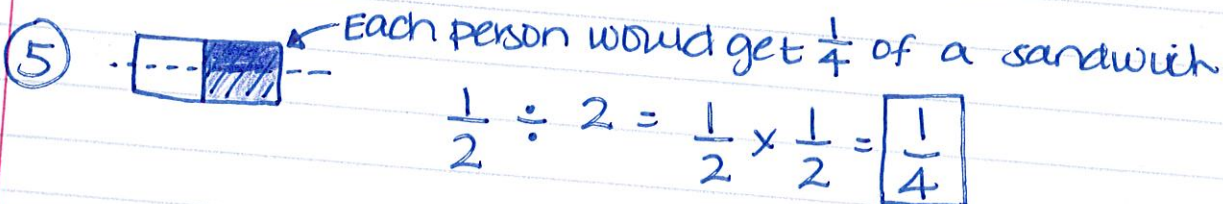 5 Each person would get 1/4 of a sandwich
1/2 ÷ 2 = 1/2 × 1/2 = 1/4